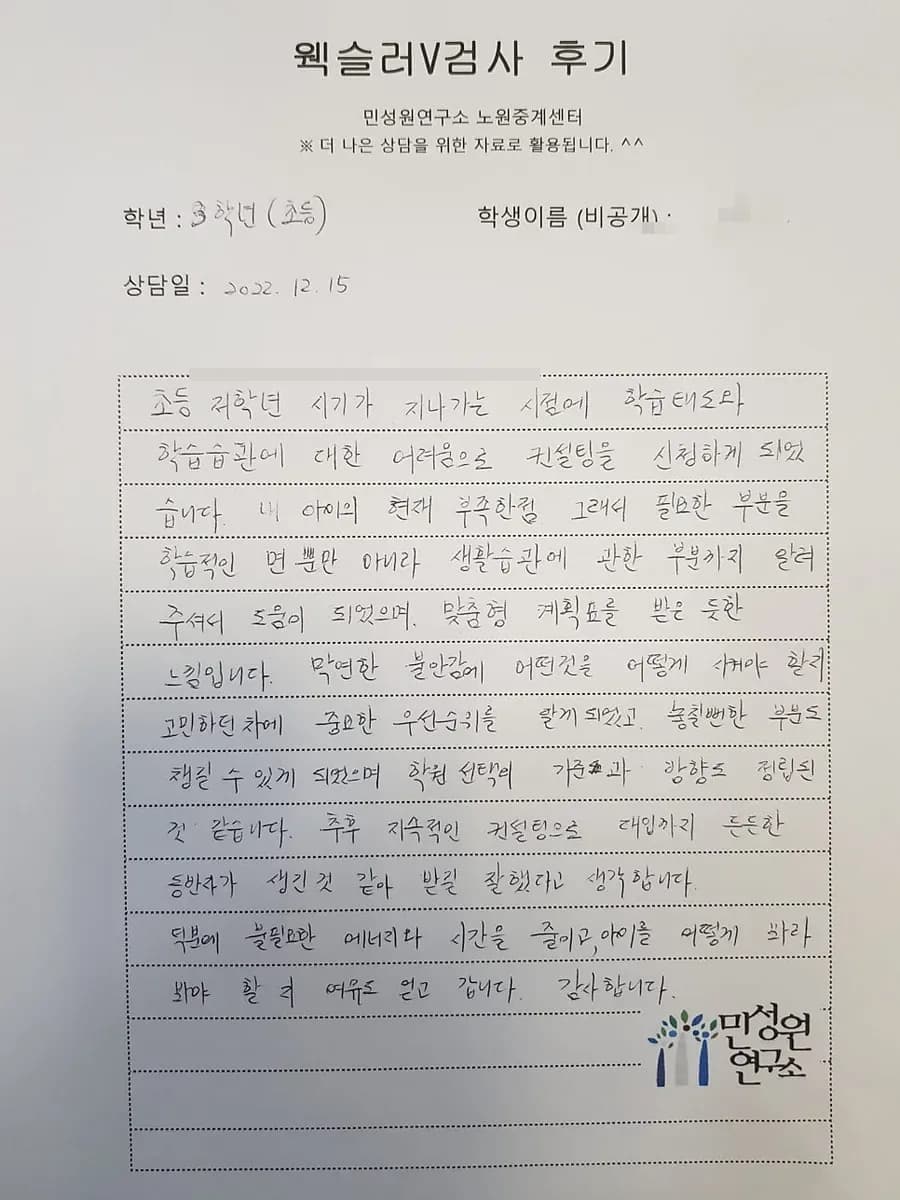 웩슬러V검사 후기
민성원연구소 노원중계센터
※ 더 나은 상담을 위한 자료로 활용됩니다. ^^
학년 : 3학년 (초등)
학생이름 (비공개) :
상담일 : 2022. 12. 15
초등 저학년 시기가 지나가는 시점에 학습태도와
학습습관에 대한 어려움으로 컨설팅을 신청하게 되었
습니다. 내 아이의 현재 부족한점 그래서 필요한 부분을
학습적인 면 뿐만 아니라 생활습관에 관한 부분까지 알려
주셔서 도움이 되었으며, 맞춤형 계획표를 받은 듯한
느낌입니다. 막연한 불안감에 어떤것을 어떻게 시켜야 할지
고민하던 차에 중요한 우선순위를 알게 되었고, 놓칠뻔한 부분도
챙길 수 있게 되었으며 학원 선택의 기준과 방향도 정립된
것 같습니다. 추후 지속적인 컨설팅으로 대입까지 든든한
동반자가 생긴것 같아 받길 잘했다고 생각합니다.
덕분에 불필요한 에너지와 시간을 줄이고, 아이를 어떻게 바라
봐야 할 지 여유도 얻고 갑니다. 감사합니다.
민성원
연구소